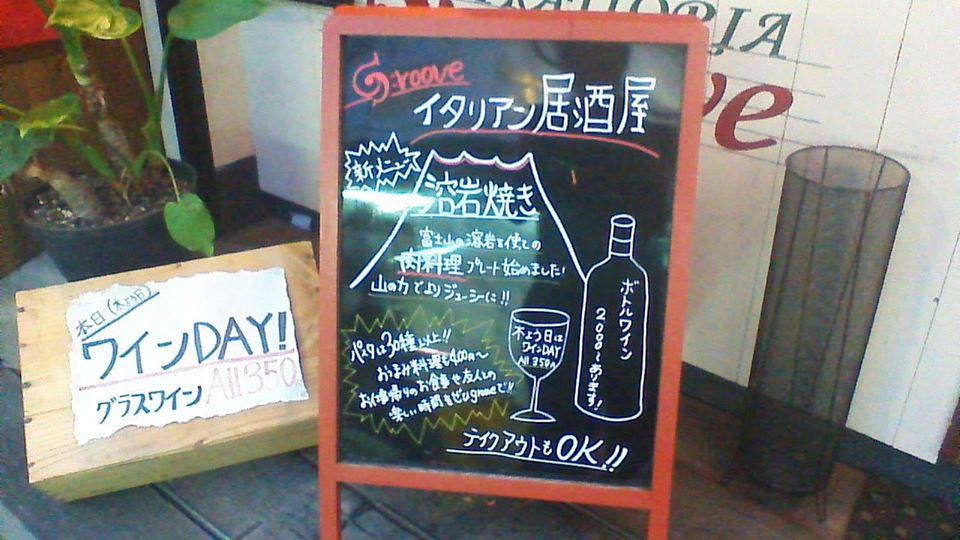 TRATTORIA
ve
Groove
イタリアン居酒屋
新メニュー
溶岩焼き
富士山の溶岩を使っての
肉料理プレート始めました!
山の力でよりジューシーに!!
ボトルワイン
2000~あります!
木よう日は
ワインDAY
All 350円
パスタは30種以上!!
おつまみ料理も400円~
お仕事帰りのお食事や友人との
楽しい時間をぜひgrooveで!!
テイクアウトもOK!!
本日(木よう日)
ワインDAY!
グラスワイン All 350